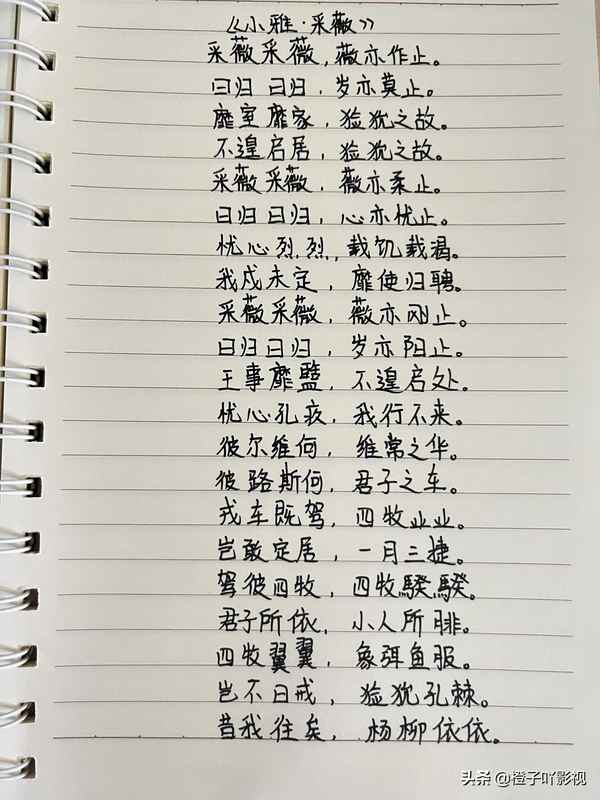 《小雅·采薇》
采薇采薇,薇亦作止。
曰归曰归,岁亦莫止。
靡室靡家,猃狁之故。
不遑启居,猃狁之故。
采薇采薇,薇亦柔止。
曰归曰归,心亦忧止。
忧心烈烈,载饥载渴。
我戍未定,靡使归聘。
采薇采薇,薇亦刚止。
曰归曰归,岁亦阳止。
王事靡盬,不遑启处。
忧心孔疚,我行不来。
彼尔维何,维常之华。
彼路斯何,君子之车。
戎车既驾,四牧业业。
岂敢定居,一月三捷。
驾彼四牧,四牧騤騤。
君子所依,小人所腓。
四牧翼翼,象弭鱼服。
岂不日戒,猃狁孔棘。
昔我往矣,杨柳依依。
头条 @橙子吖影视